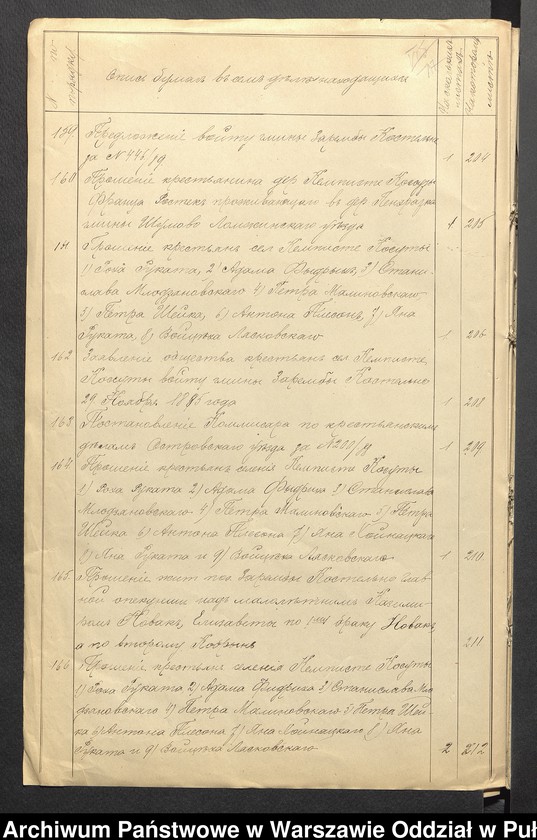 № по порядку
Опись бумагъ въ семъ дѣлѣ находящихся
159. Предложеніе войту гмины Зарембы Костельна
за № 446/9 1 204
160 Прошеніе крестьянина дер Кемписте Косуты
Франца проживающаго въ дер
гмины Шумово Ломжинскаго уѣзда 1 205
Прошеніе крестьянъ сел Кемписте Косуты
1) Роха Руката, 2) Адама Фидрыхъ, 3) Стани-
слава Млодзяновскаго 4) Петра Малиновскаго
5) Петра Шейка, 6) Антона 7) Яна
Руката, 8) Войцѣха Лясковскаго 1 206
162 Заявленіе общества крестьянъ сел Кемписте
Косуты войту гмины Зарембы Костельно
29 Ноября 1885 года 1 208
163 Постановленіе Коммисара по крестьянскимъ
дѣламъ Островскаго уѣзда за 1 209
164 Прошеніе крестьянъ Кемписте Косуты
1) Роха Руката 2) Адама Фыдриха 3) Станислава
Млодзяновскаго 4) Петра Малиновскаго 5) Петра
Шейка 6) Антона 7) Яна
8) Яна Руката и 9) Войцѣха Лясковскаго 1 210
165. Прошеніе жит пос Зарембы Костельно глав-
ной опекунши надъ малолѣтнимъ Казими-
ромъ Новакъ, Елизаветы по 1му браку Новакъ
а по второму 211
166 Прошеніе крестьянъ Кемписте Косуты
1) Роха Руката 2) Адама Фидриха 3) Станислава Мло-
дзяновскаго 4) Петра Малиновскаго 5) Петра Шей-
ка 6) Антона 7) Яна 8) Яна
Руката и 9) Войцѣха Лясковскаго 2 212
Archiwum Państwowe w Warszawie Oddział w Puł